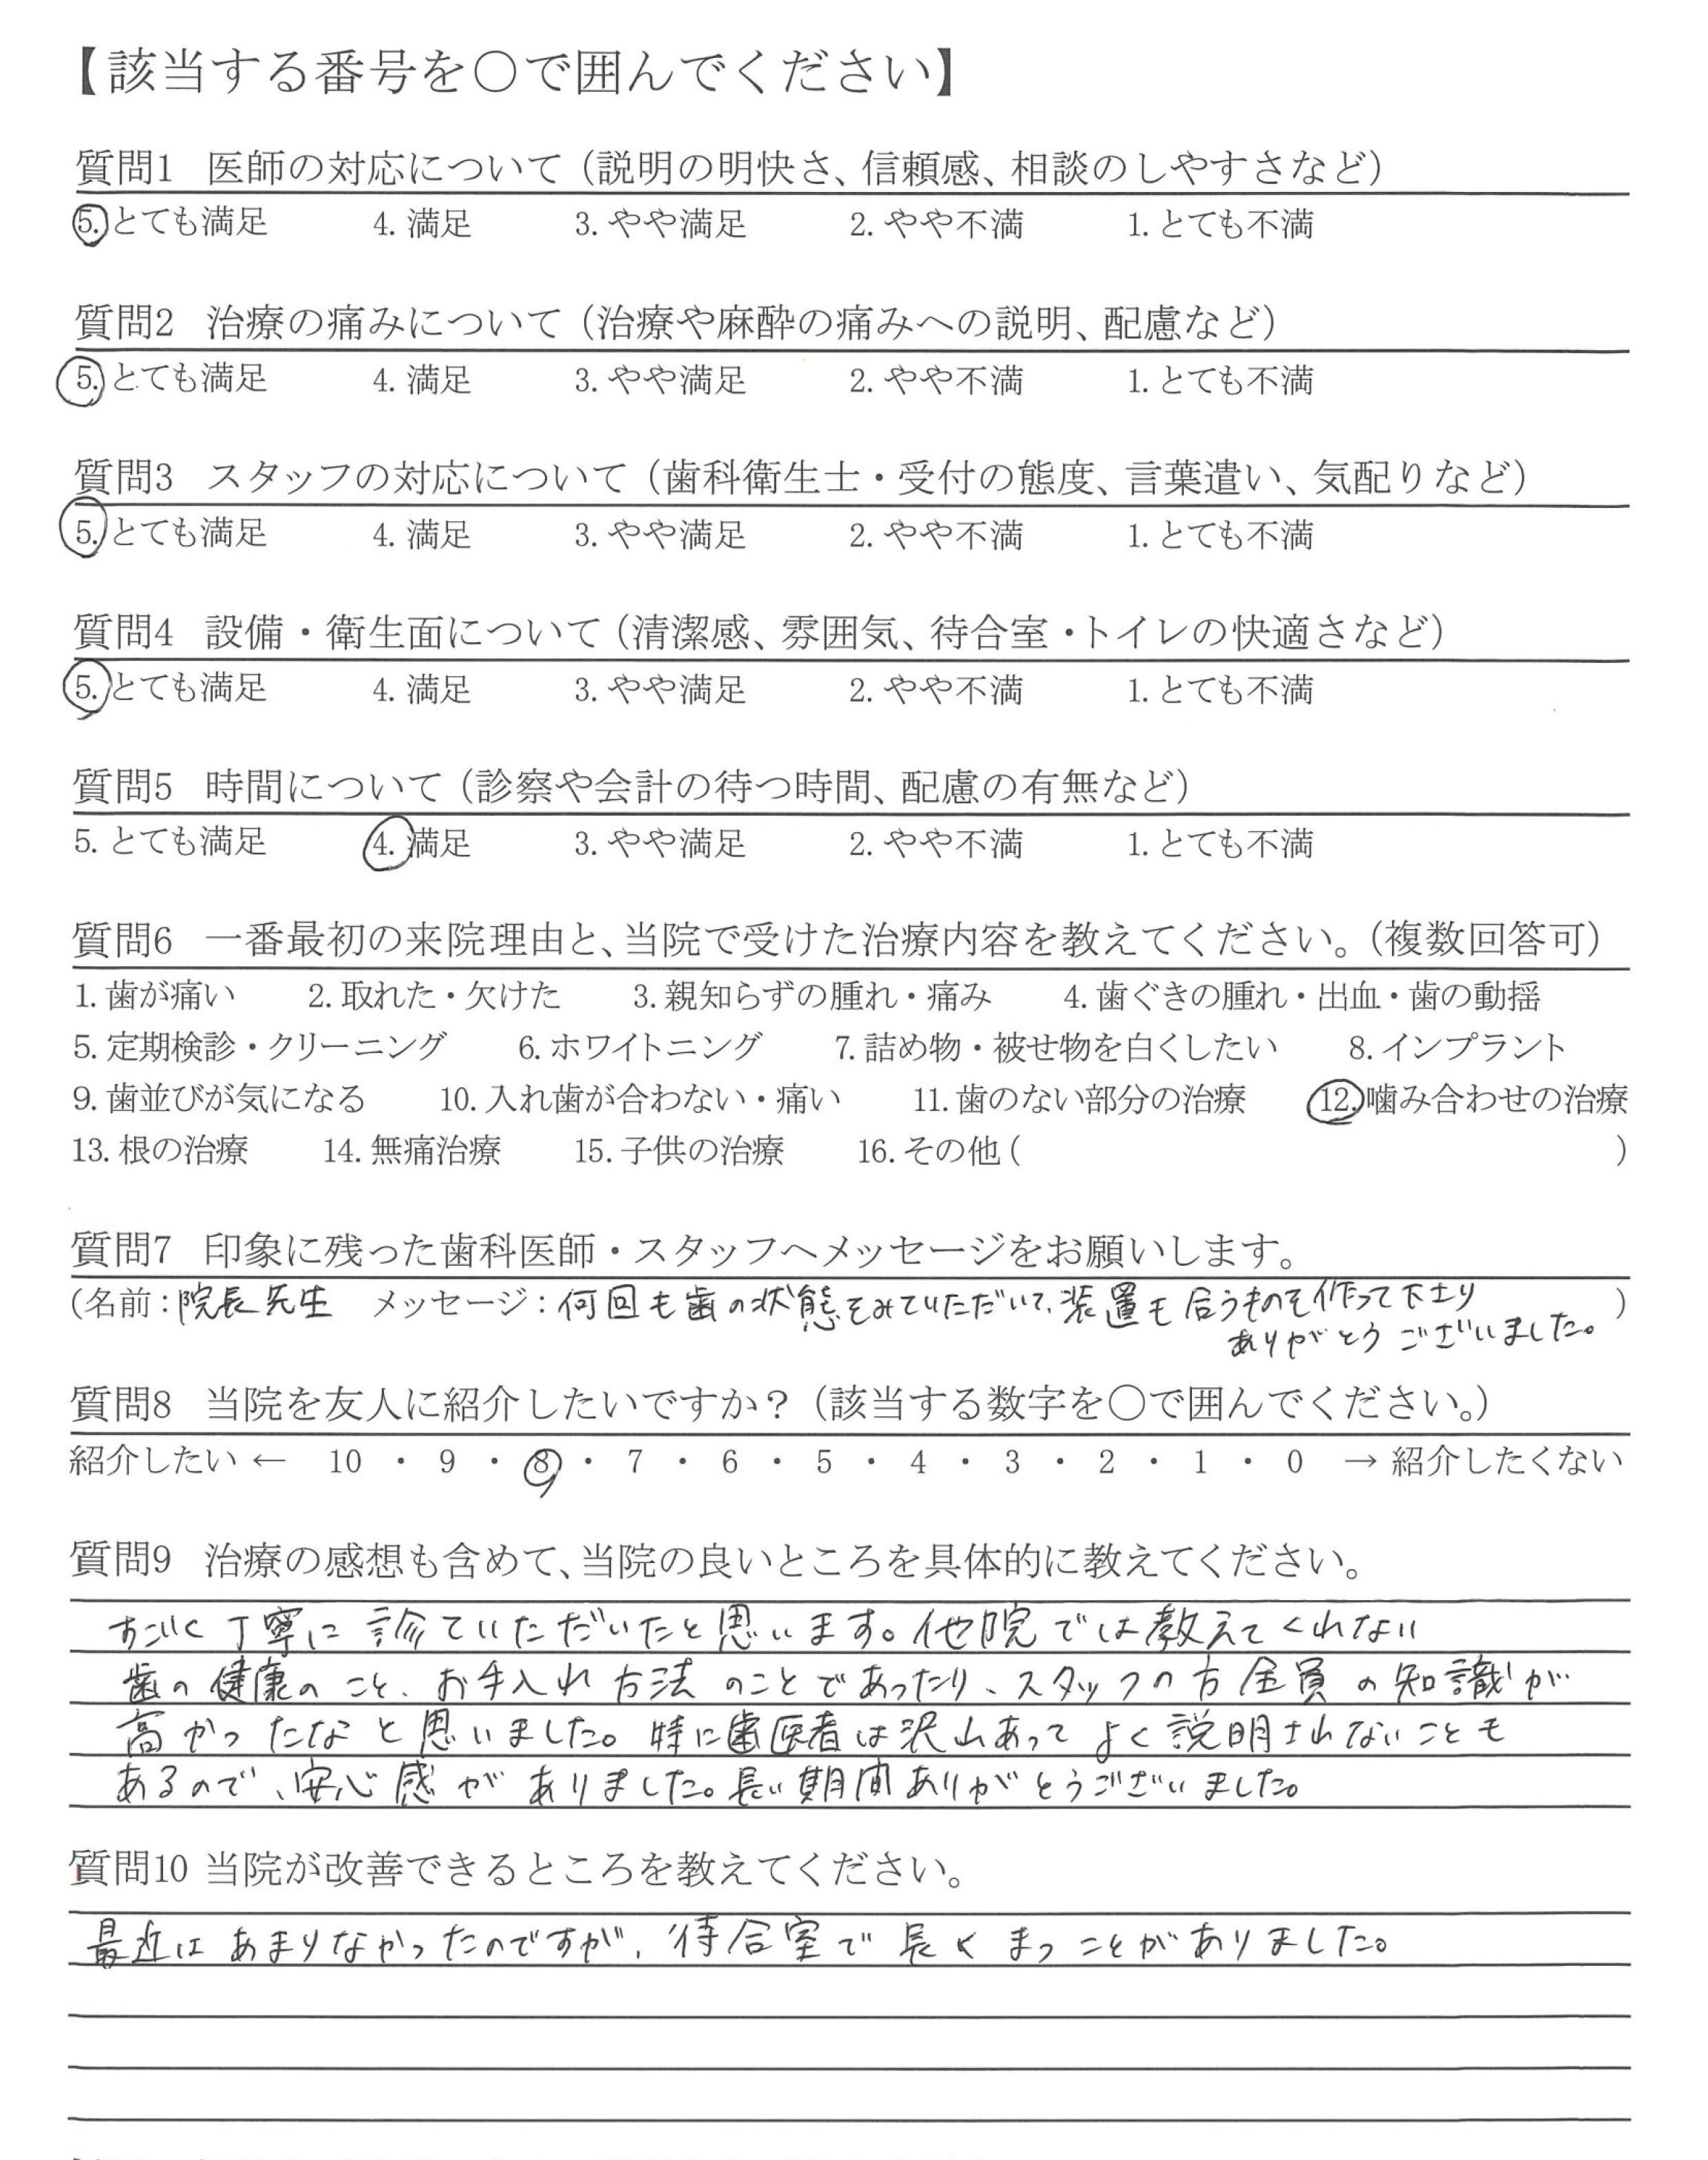 【該当する番号を○で囲んでください】
質問1 医師の対応について（説明の明快さ、信頼感、相談のしやすさなど）
5. とても満足 4. 満足 3. やや満足 2. やや不満 1. とても不満
質問2 治療の痛みについて（治療や麻酔の痛みへの説明、配慮など）
5. とても満足 4. 満足 3. やや満足 2. やや不満 1. とても不満
質問3 スタッフの対応について（歯科衛生士・受付の態度、言葉遣い、気配りなど）
5. とても満足 4. 満足 3. やや満足 2. やや不満 1. とても不満
質問4 設備・衛生面について（清潔感、雰囲気、待合室・トイレの快適さなど）
5. とても満足 4. 満足 3. やや満足 2. やや不満 1. とても不満
質問5 時間について（診察や会計の待つ時間、配慮の有無など）
5. とても満足 4. 満足 3. やや満足 2. やや不満 1. とても不満
質問6 一番最初の来院理由と、当院で受けた治療内容を教えてください。（複数回答可）
1. 歯が痛い 2. 取れた・欠けた 3. 親知らずの腫れ・痛み 4. 歯ぐきの腫れ・出血・歯の動揺
5. 定期検診・クリーニング 6. ホワイトニング 7. 詰め物・被せ物を白くしたい 8. インプラント
9. 歯並びが気になる 10. 入れ歯が合わない・痛い 11. 歯のない部分の治療 12. 噛み合わせの治療
13. 根の治療 14. 無痛治療 15. 子供の治療 16. その他（ ）
質問7 印象に残った歯科医師・スタッフへメッセージをお願いします。
（名前：院長先生 メッセージ：何回も歯の状態をみていただいて、装置も合うものを作って下さり ）
ありがとうございました。
質問8 当院を友人に紹介したいですか？（該当する数字を○で囲んでください。）
紹介したい ← 10 ・ 9 ・ 8 ・ 7 ・ 6 ・ 5 ・ 4 ・ 3 ・ 2 ・ 1 ・ 0 → 紹介したくない
質問9 治療の感想も含めて、当院の良いところを具体的に教えてください。
すごく丁寧に診ていただいたと思います。他院では教えてくれない
歯の健康のこと、お手入れ方法のことであったり、スタッフの方全員の知識が
高かったなと思いました。特に歯医者は沢山あってよく説明されないことも
あるので、安心感がありました。長い期間ありがとうございました。
質問10 当院が改善できるところを教えてください。
最近はあまりなかったのですが、待合室で長くまつことがありました。